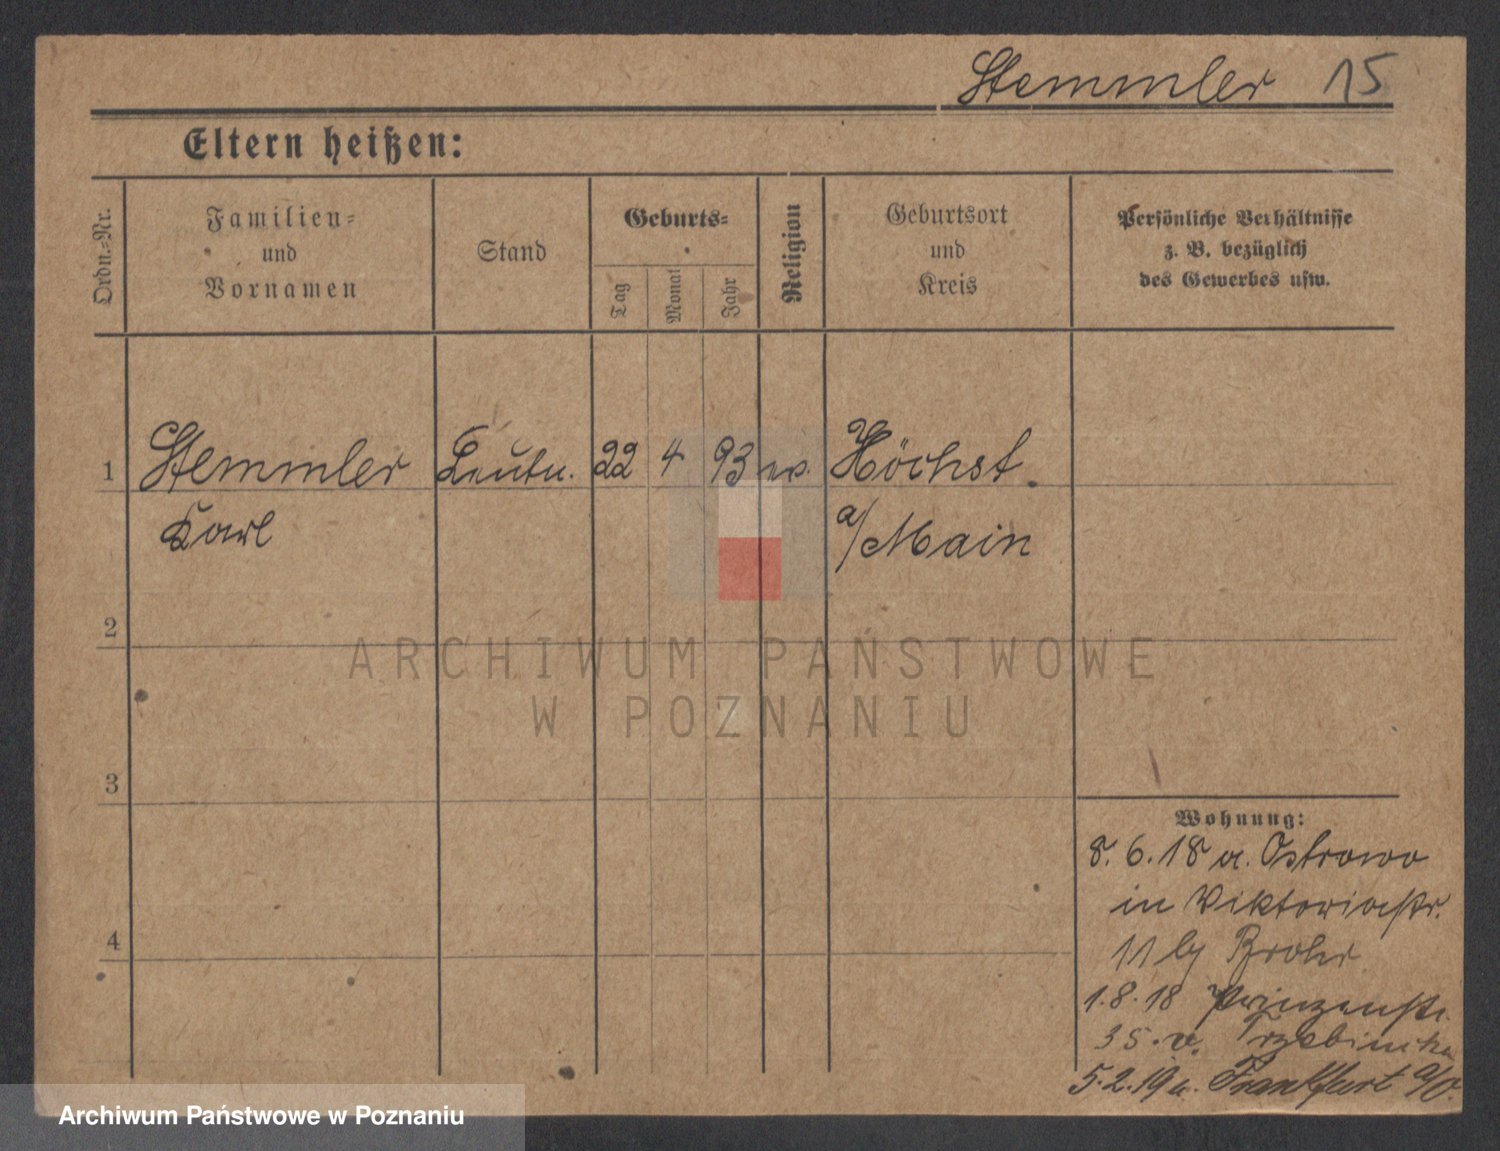 Stemmler 15
Eltern heißen:
Ordn.-Nr.
Familien-
und
Vornamen
Stand
Geburts-
Tag
Monat
Jahr
Religion
Geburtsort
und
Kreis
Persönliche Verhältnisse
z. B. bezüglich
des Gewerbes usw.
1 Stemmler Leutn. 22 4 93 ev. Höchst
Karl a/Main
2
ARCHIWUM PAŃSTWOWE
W POZNANIU
3
Wohnung:
8.6.18 a. Ostrowo
in Viktoriastr.
4
11 b/ Brohr
1.8.18 Prinzenstr.
35. v.
5.2.19 n. Frankfurt a/O.
Archiwum Państwowe w Poznaniu